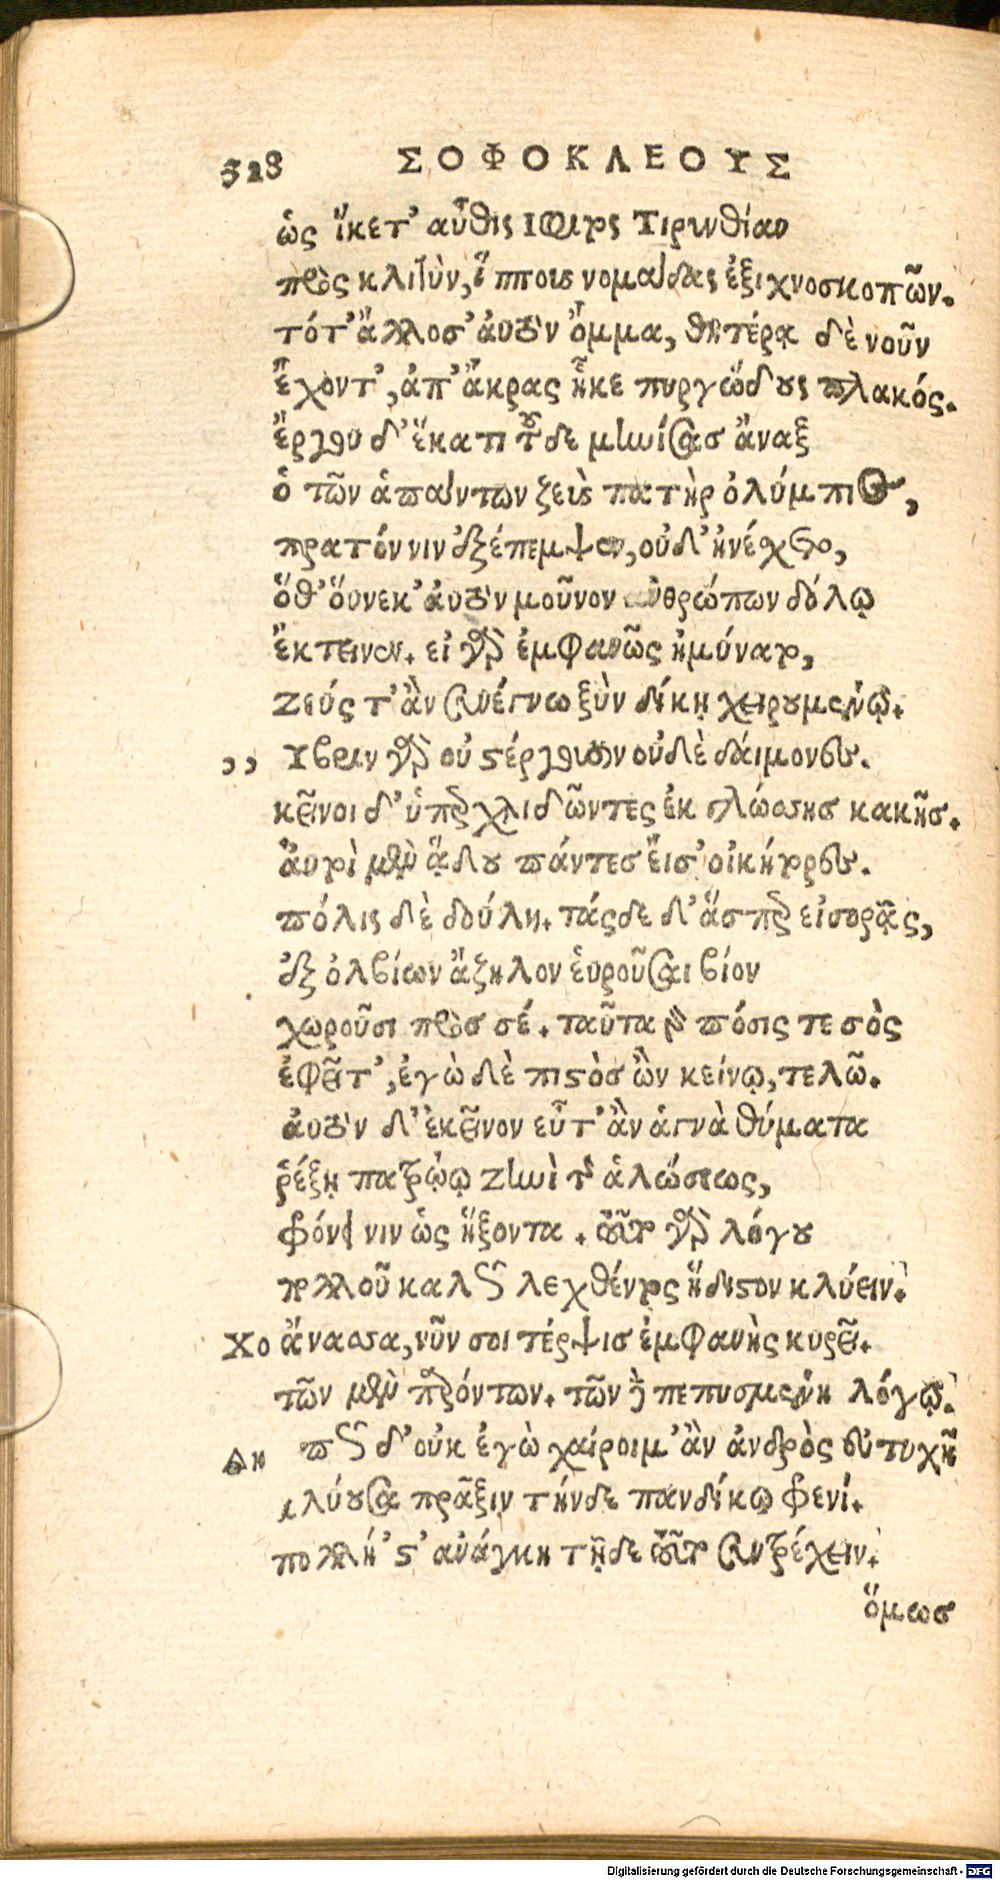 328 ΣΟΦΟΚΛΕΟΥΣ
ὡς ἵκετ' αὖθις Ιφιτος Τιρυνθίαν
πρὸς κλιτὺν, ἵππους νομάδας ἐξιχνοσκοπῶν.
τότ' ἄλλοσ' ἀυτὸν ὄμμα, θητέρᾳ δὲ νοῦν
ἔχοντ', ἀπ' ἄκρας ἧκε πυργώδους πλακός.
ἔργου δ' ἕκατι τοῦδε μηνίσας ἄναξ
ὁ τῶν ἁπάντων ζεὺς πατὴρ ὀλύμπιος,
πρατόν νιν ἐξέπεμψεν, οὐδ' ἠνέχετο,
ὅθ' ὅυνεκ' ἀυτὸν μοῦνον ἀνθρώπων δόλῳ
ἔκτεινεν. εἰ γὰρ ἐμφανῶς ἠμύνατο,
Ζεύς τ' ἂν συνέγνω ξὺν δίκῃ χειρουμένῳ.
,, Υβριν γὰρ οὐ στέργουσιν οὐδὲ δάιμονες.
κεῖνοι δ' ὑπερχλιδῶντες ἐκ γλώσσης κακῆς.
ἀυτοὶ μὲν ᾅδου πάντες εἴσ' οἰκήτορες.
πόλις δὲ δούλη. τάςδε δ' ἅσπερ εἰσορᾷς,
ἐξ ὀλβίων ἄζηλον ἑυροῦσαι βίον
χωροῦσι πρὸς σέ. ταῦτα γὰρ πόσις τε σὸς
ἐφεῖτ', ἐγὼ δὲ πιστὸς ὢν κείνῳ, τελῶ.
ἀυτὸν δ' ἐκεῖνον εὖτ' ἂν ἁγνὰ θύματα
ῥέξῃ πατρῴῳ Ζηνὶ τῆς ἁλώσεως,
φρόνει νιν ὡς ἥξοντα. τοῦτο γὰρ λόγου
πολλοῦ καλῶς λεχθέντος ἥδιστον κλύειν.
Χο ἄνασσα, νῦν σοι τέρψις ἐμφανὴς κυρεῖ.
τῶν μὲν παρόντων. τῶν δὲ πεπυσμένη λόγῳ.
Δη πῶς δ' οὐκ ἐγὼ χαίροιμ' ἂν ἀνδρὸς εὐτυχῆ
κλύουσα πρᾶξιν τήνδε πανδίκῳ φρενί.
πολλή 'στ' ἀνάγκη τῇδε τοῦτο συντρέχειν.
ὅμως
Digitalisierung gefördert durch die Deutsche Forschungsgemeinschaft - DFG